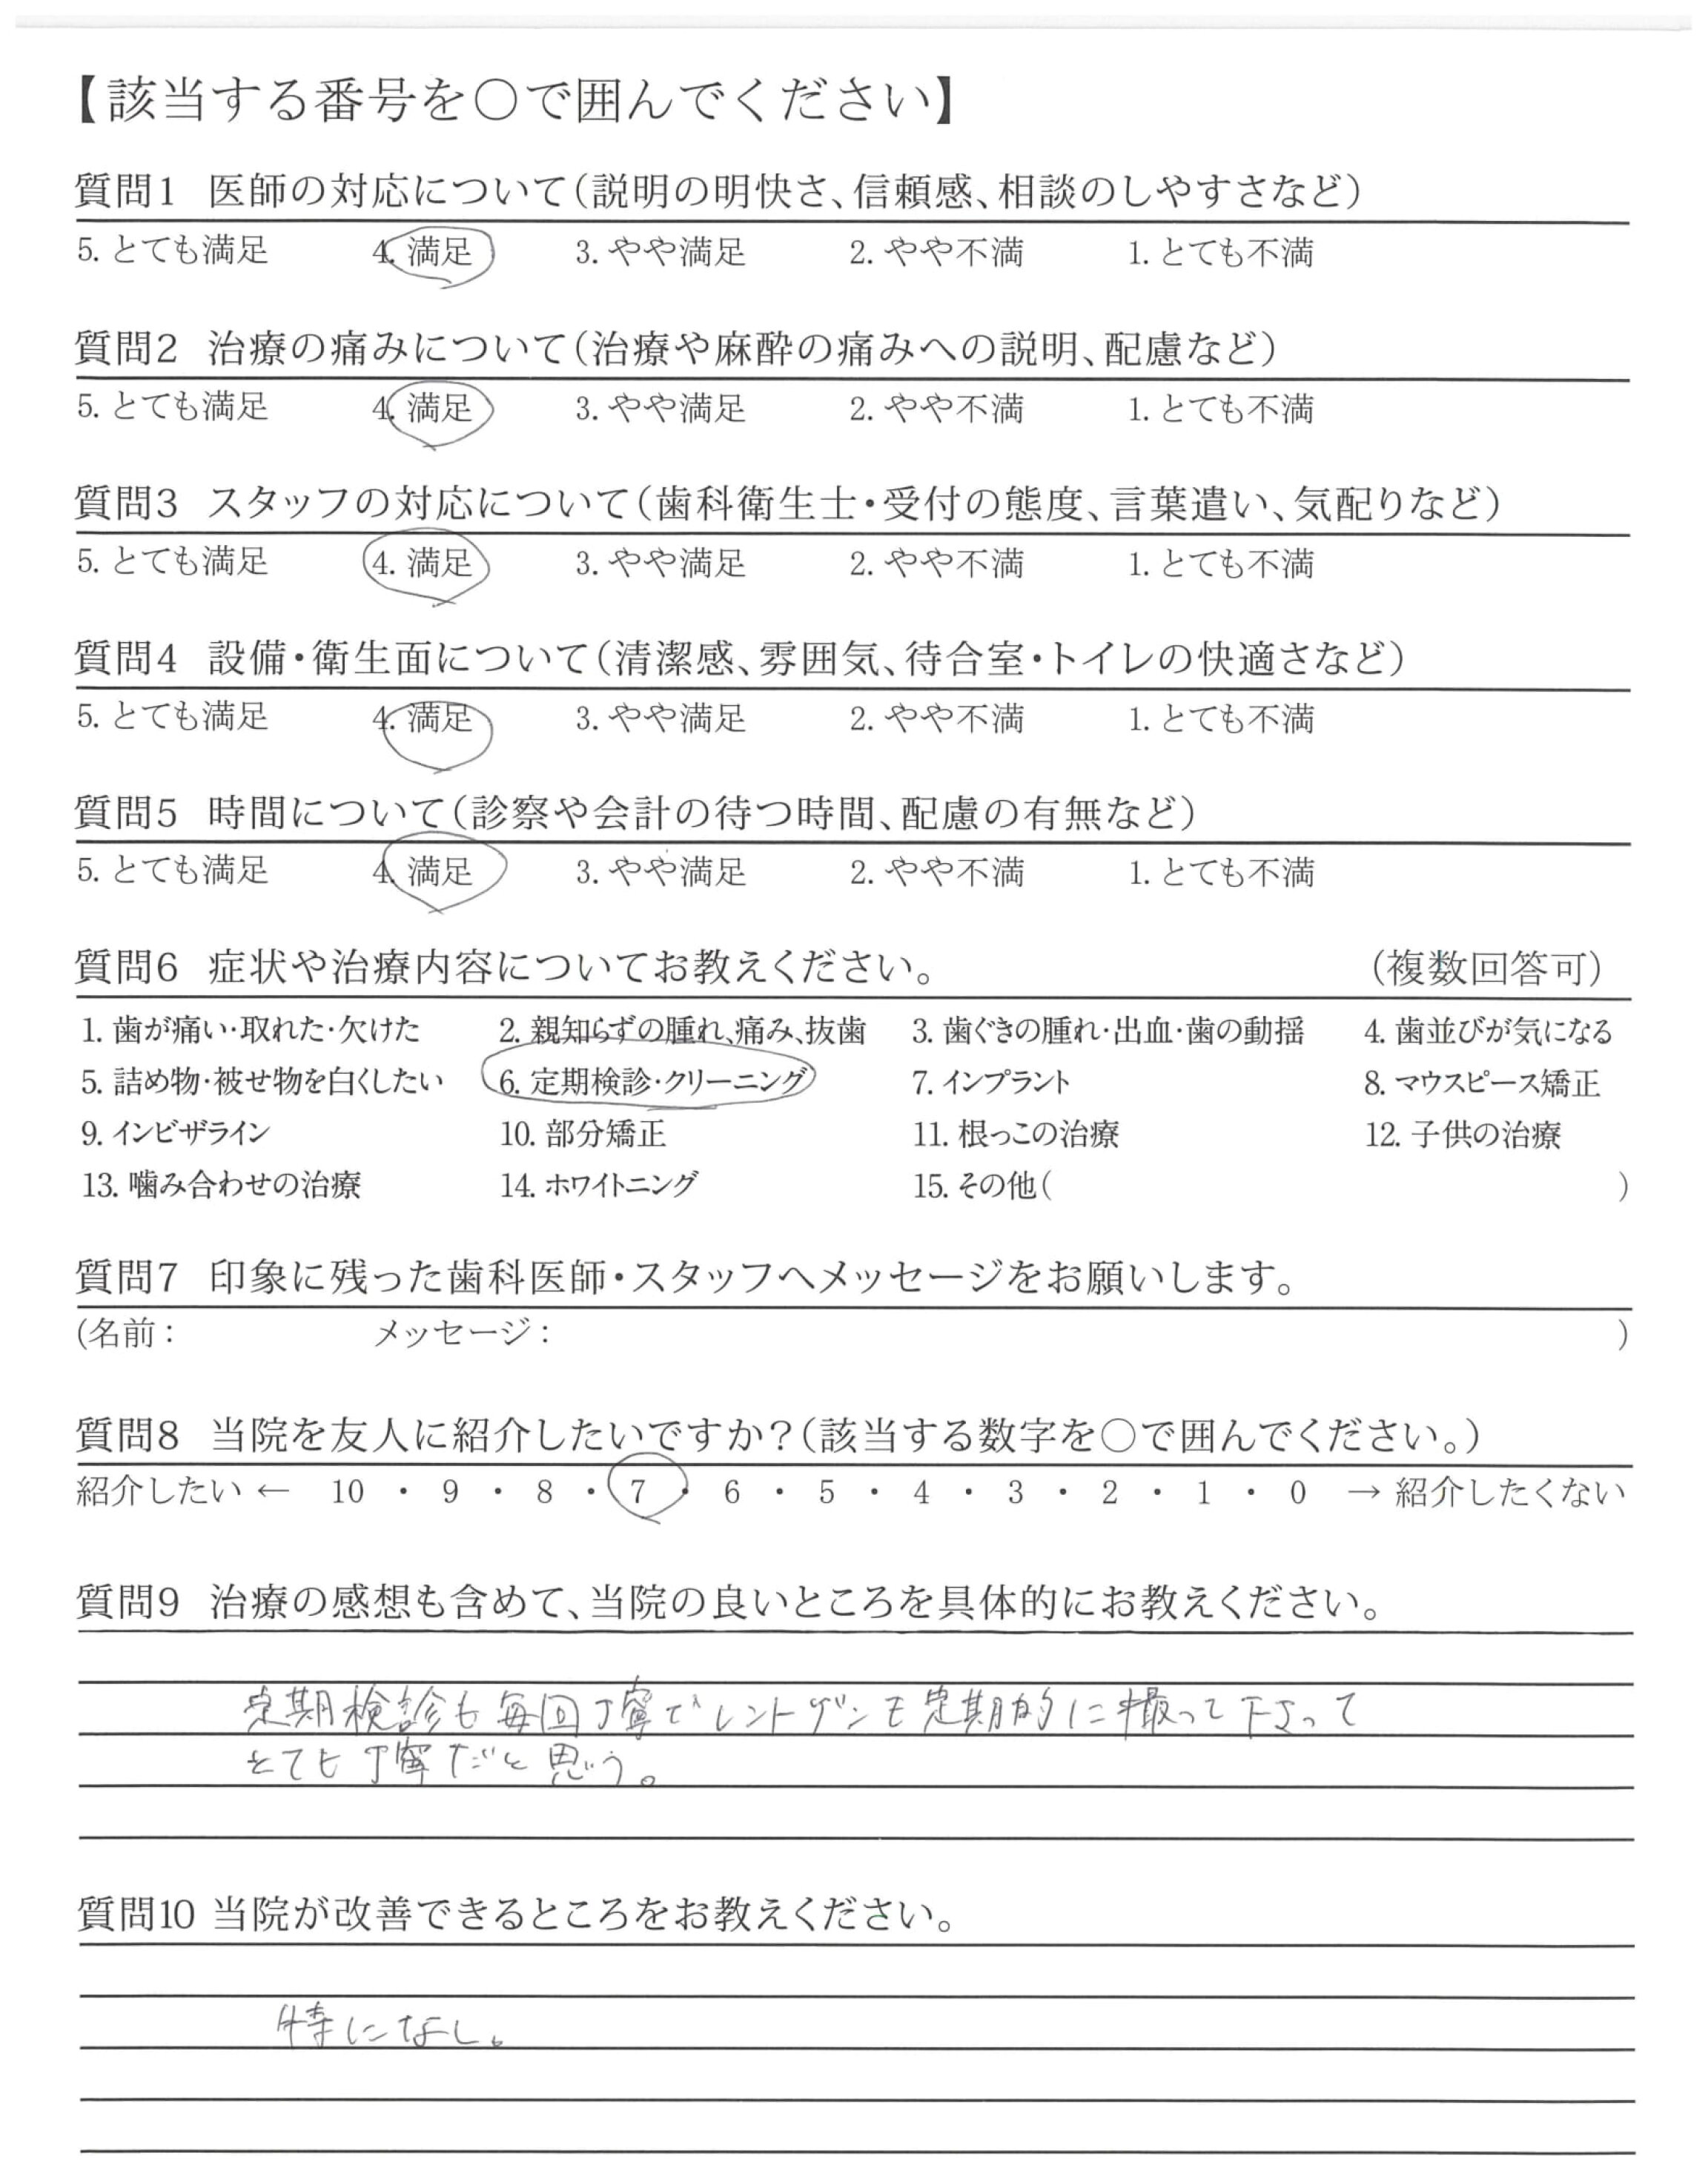 【該当する番号を〇で囲んでください】
質問1 医師の対応について(説明の明快さ、信頼感、相談のしやすさなど)
5. とても満足 4. 満足 3. やや満足 2. やや不満 1. とても不満
質問2 治療の痛みについて(治療や麻酔の痛みへの説明、配慮など)
5. とても満足 4. 満足 3. やや満足 2. やや不満 1. とても不満
質問3 スタッフの対応について(歯科衛生士・受付の態度、言葉遣い、気配りなど)
5. とても満足 4. 満足 3. やや満足 2. やや不満 1. とても不満
質問4 設備・衛生面について(清潔感、雰囲気、待合室・トイレの快適さなど)
5. とても満足 4. 満足 3. やや満足 2. やや不満 1. とても不満
質問5 時間について(診察や会計の待つ時間、配慮の有無など)
5. とても満足 4. 満足 3. やや満足 2. やや不満 1. とても不満
質問6 症状や治療内容についてお教えください。 (複数回答可)
1. 歯が痛い・取れた・欠けた 2. 親知らずの腫れ、痛み、抜歯 3. 歯ぐきの腫れ・出血・歯の動揺 4. 歯並びが気になる
5. 詰め物・被せ物を白くしたい 6. 定期検診・クリーニング 7. インプラント 8. マウスピース矯正
9. インビザライン 10. 部分矯正 11. 根っこの治療 12. 子供の治療
13. 噛み合わせの治療 14. ホワイトニング 15. その他( )
質問7 印象に残った歯科医師・スタッフへメッセージをお願いします。
(名前: メッセージ: )
質問8 当院を友人に紹介したいですか?(該当する数字を〇で囲んでください。)
紹介したい ← 10 ・ 9 ・ 8 ・ 7 ・ 6 ・ 5 ・ 4 ・ 3 ・ 2 ・ 1 ・ 0 → 紹介したくない
質問9 治療の感想も含めて、当院の良いところを具体的にお教えください。
定期検診も毎回丁寧でレントゲンも定期的に撮って下さって
とても丁寧だと思う。
質問10 当院が改善できるところをお教えください。
特になし。